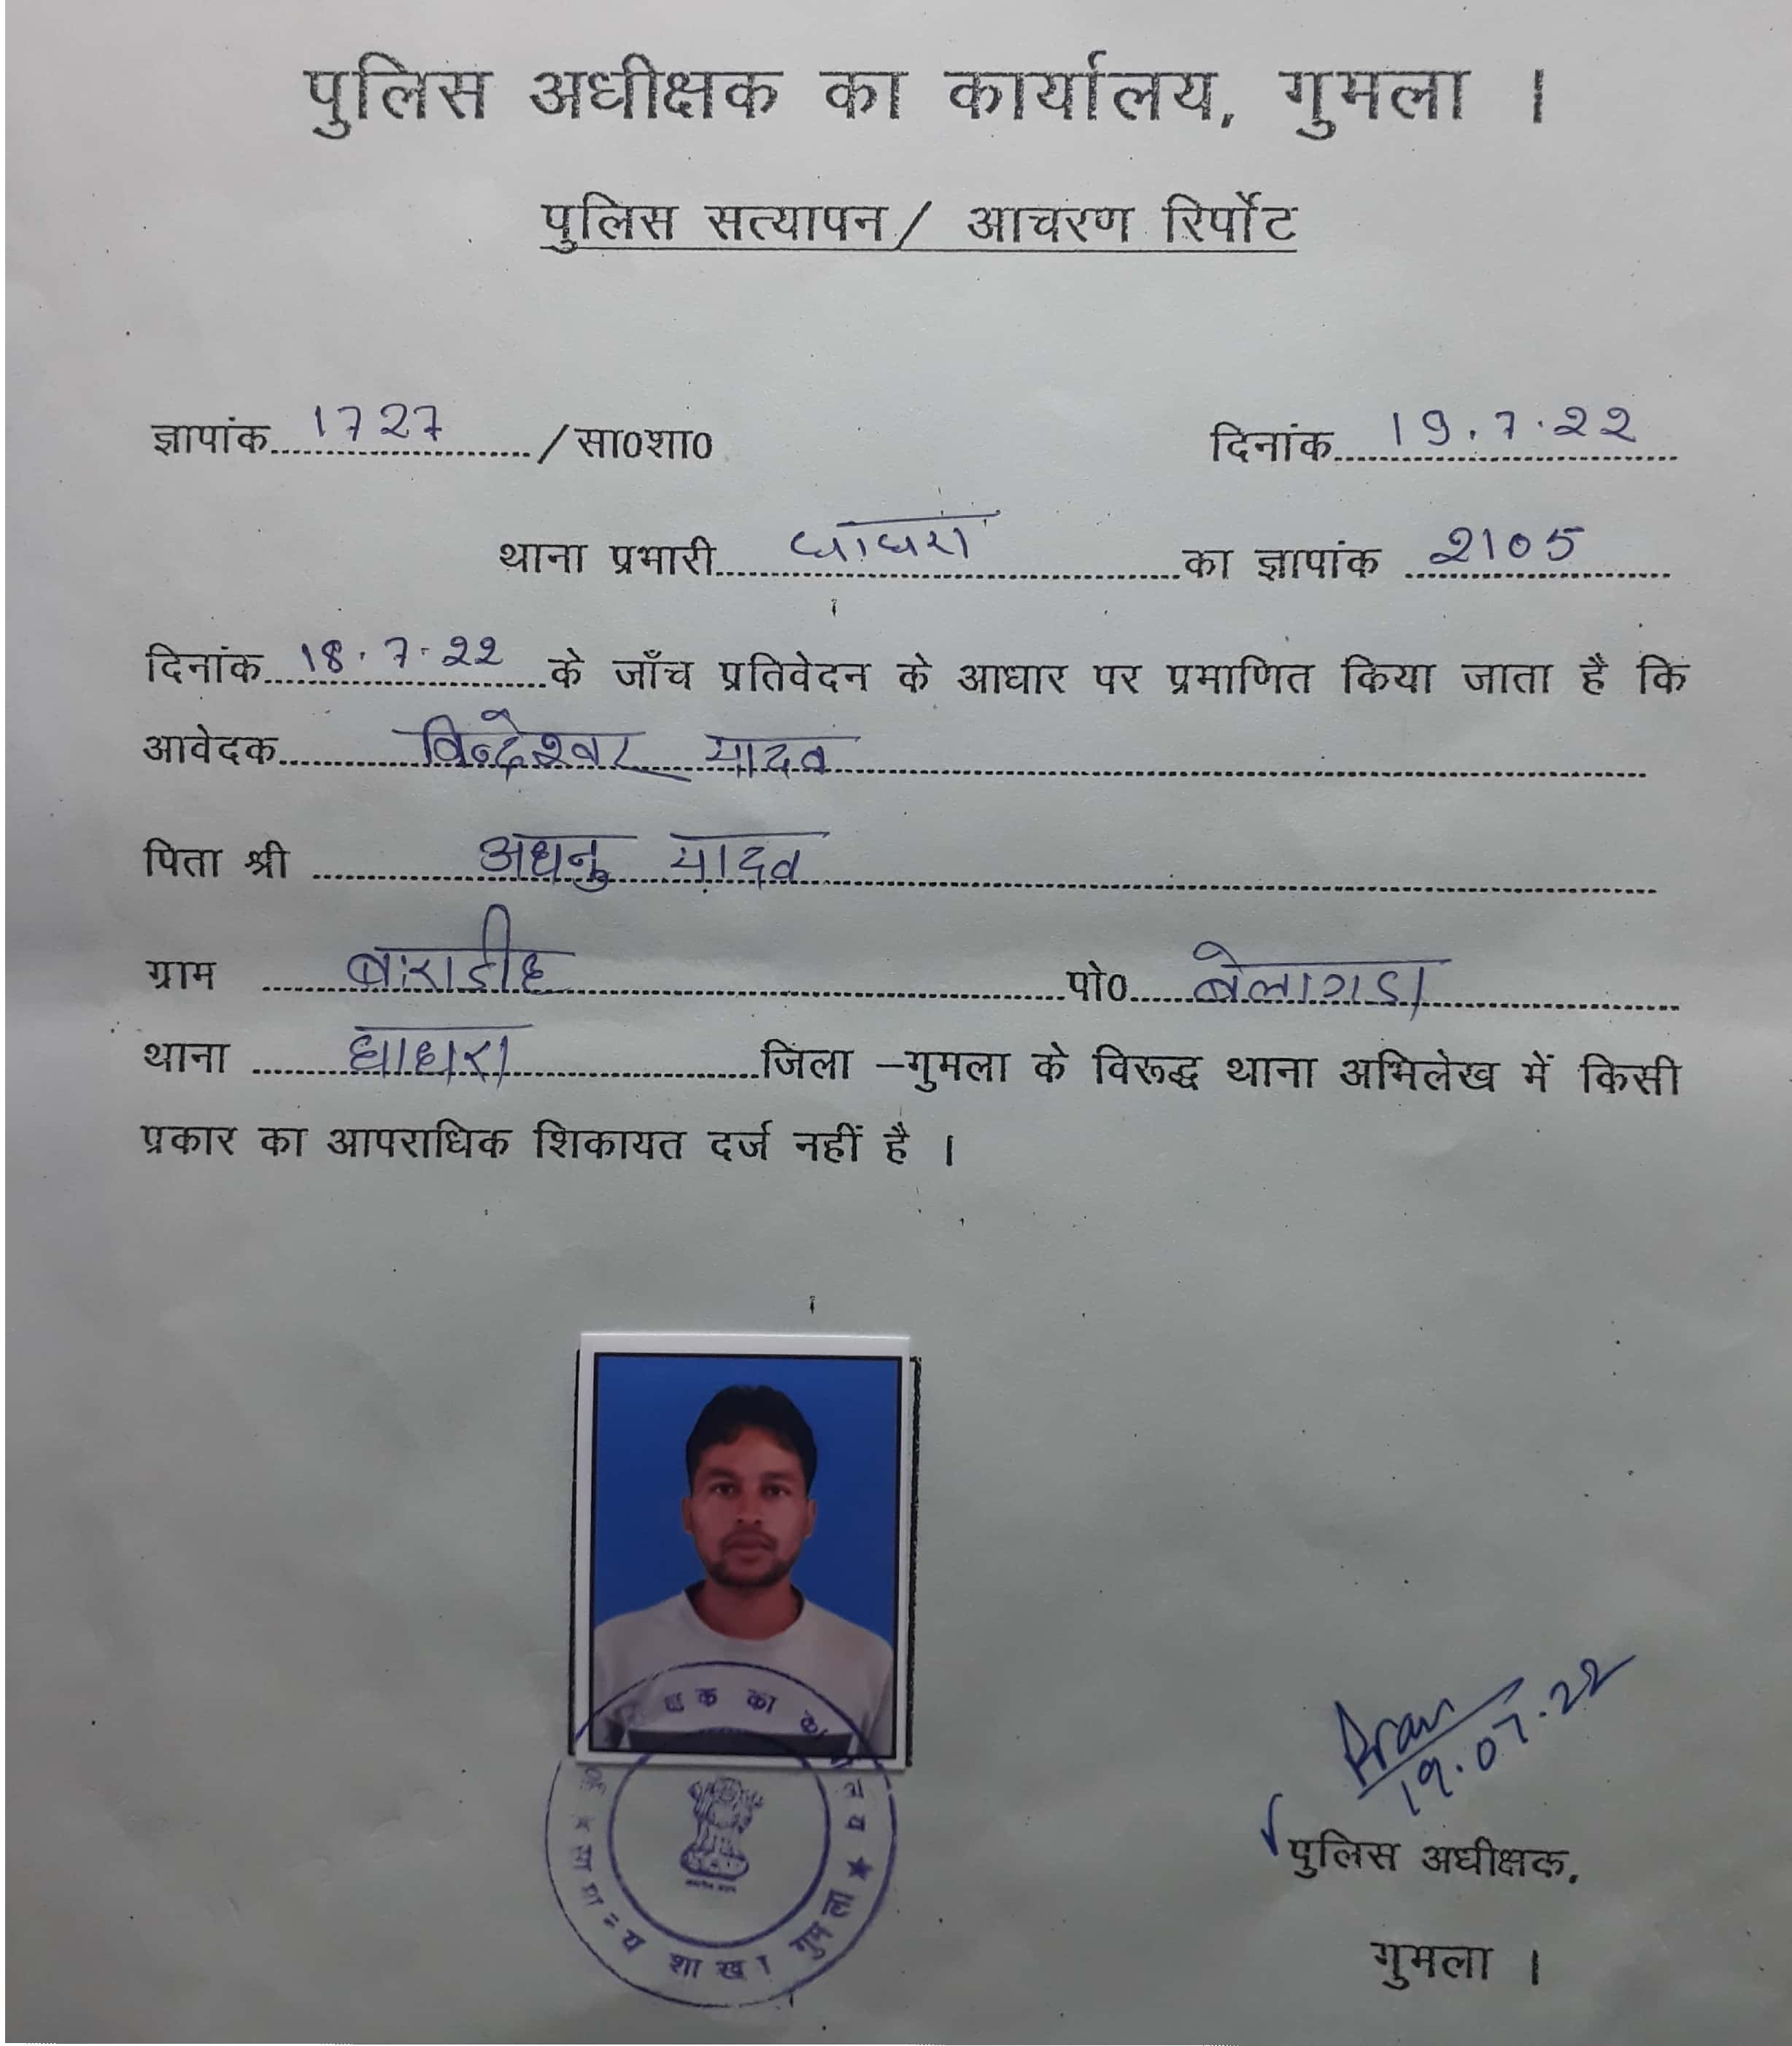 पुलिस अधीक्षक का कार्यालय, गुमला ।
पुलिस सत्यापन/ आचरण रिर्पोट
ज्ञापांक 1727 /सा0शा0 दिनांक 19.7.22
थाना प्रभारी घाघरा का ज्ञापांक 2105
दिनांक 18.7.22 के जाँच प्रतिवेदन के आधार पर प्रमाणित किया जाता है कि
आवेदक विन्देश्वर यादव
पिता श्री अघनु यादव
ग्राम बाराडीह पो0 बेलागडा
थाना घाघरा जिला –गुमला के विरूद्ध थाना अभिलेख में किसी
प्रकार का आपराधिक शिकायत दर्ज नहीं है ।
19.07.22
पुलिस अधीक्षक,
गुमला ।
क का
सामान्य शाखा गुमला